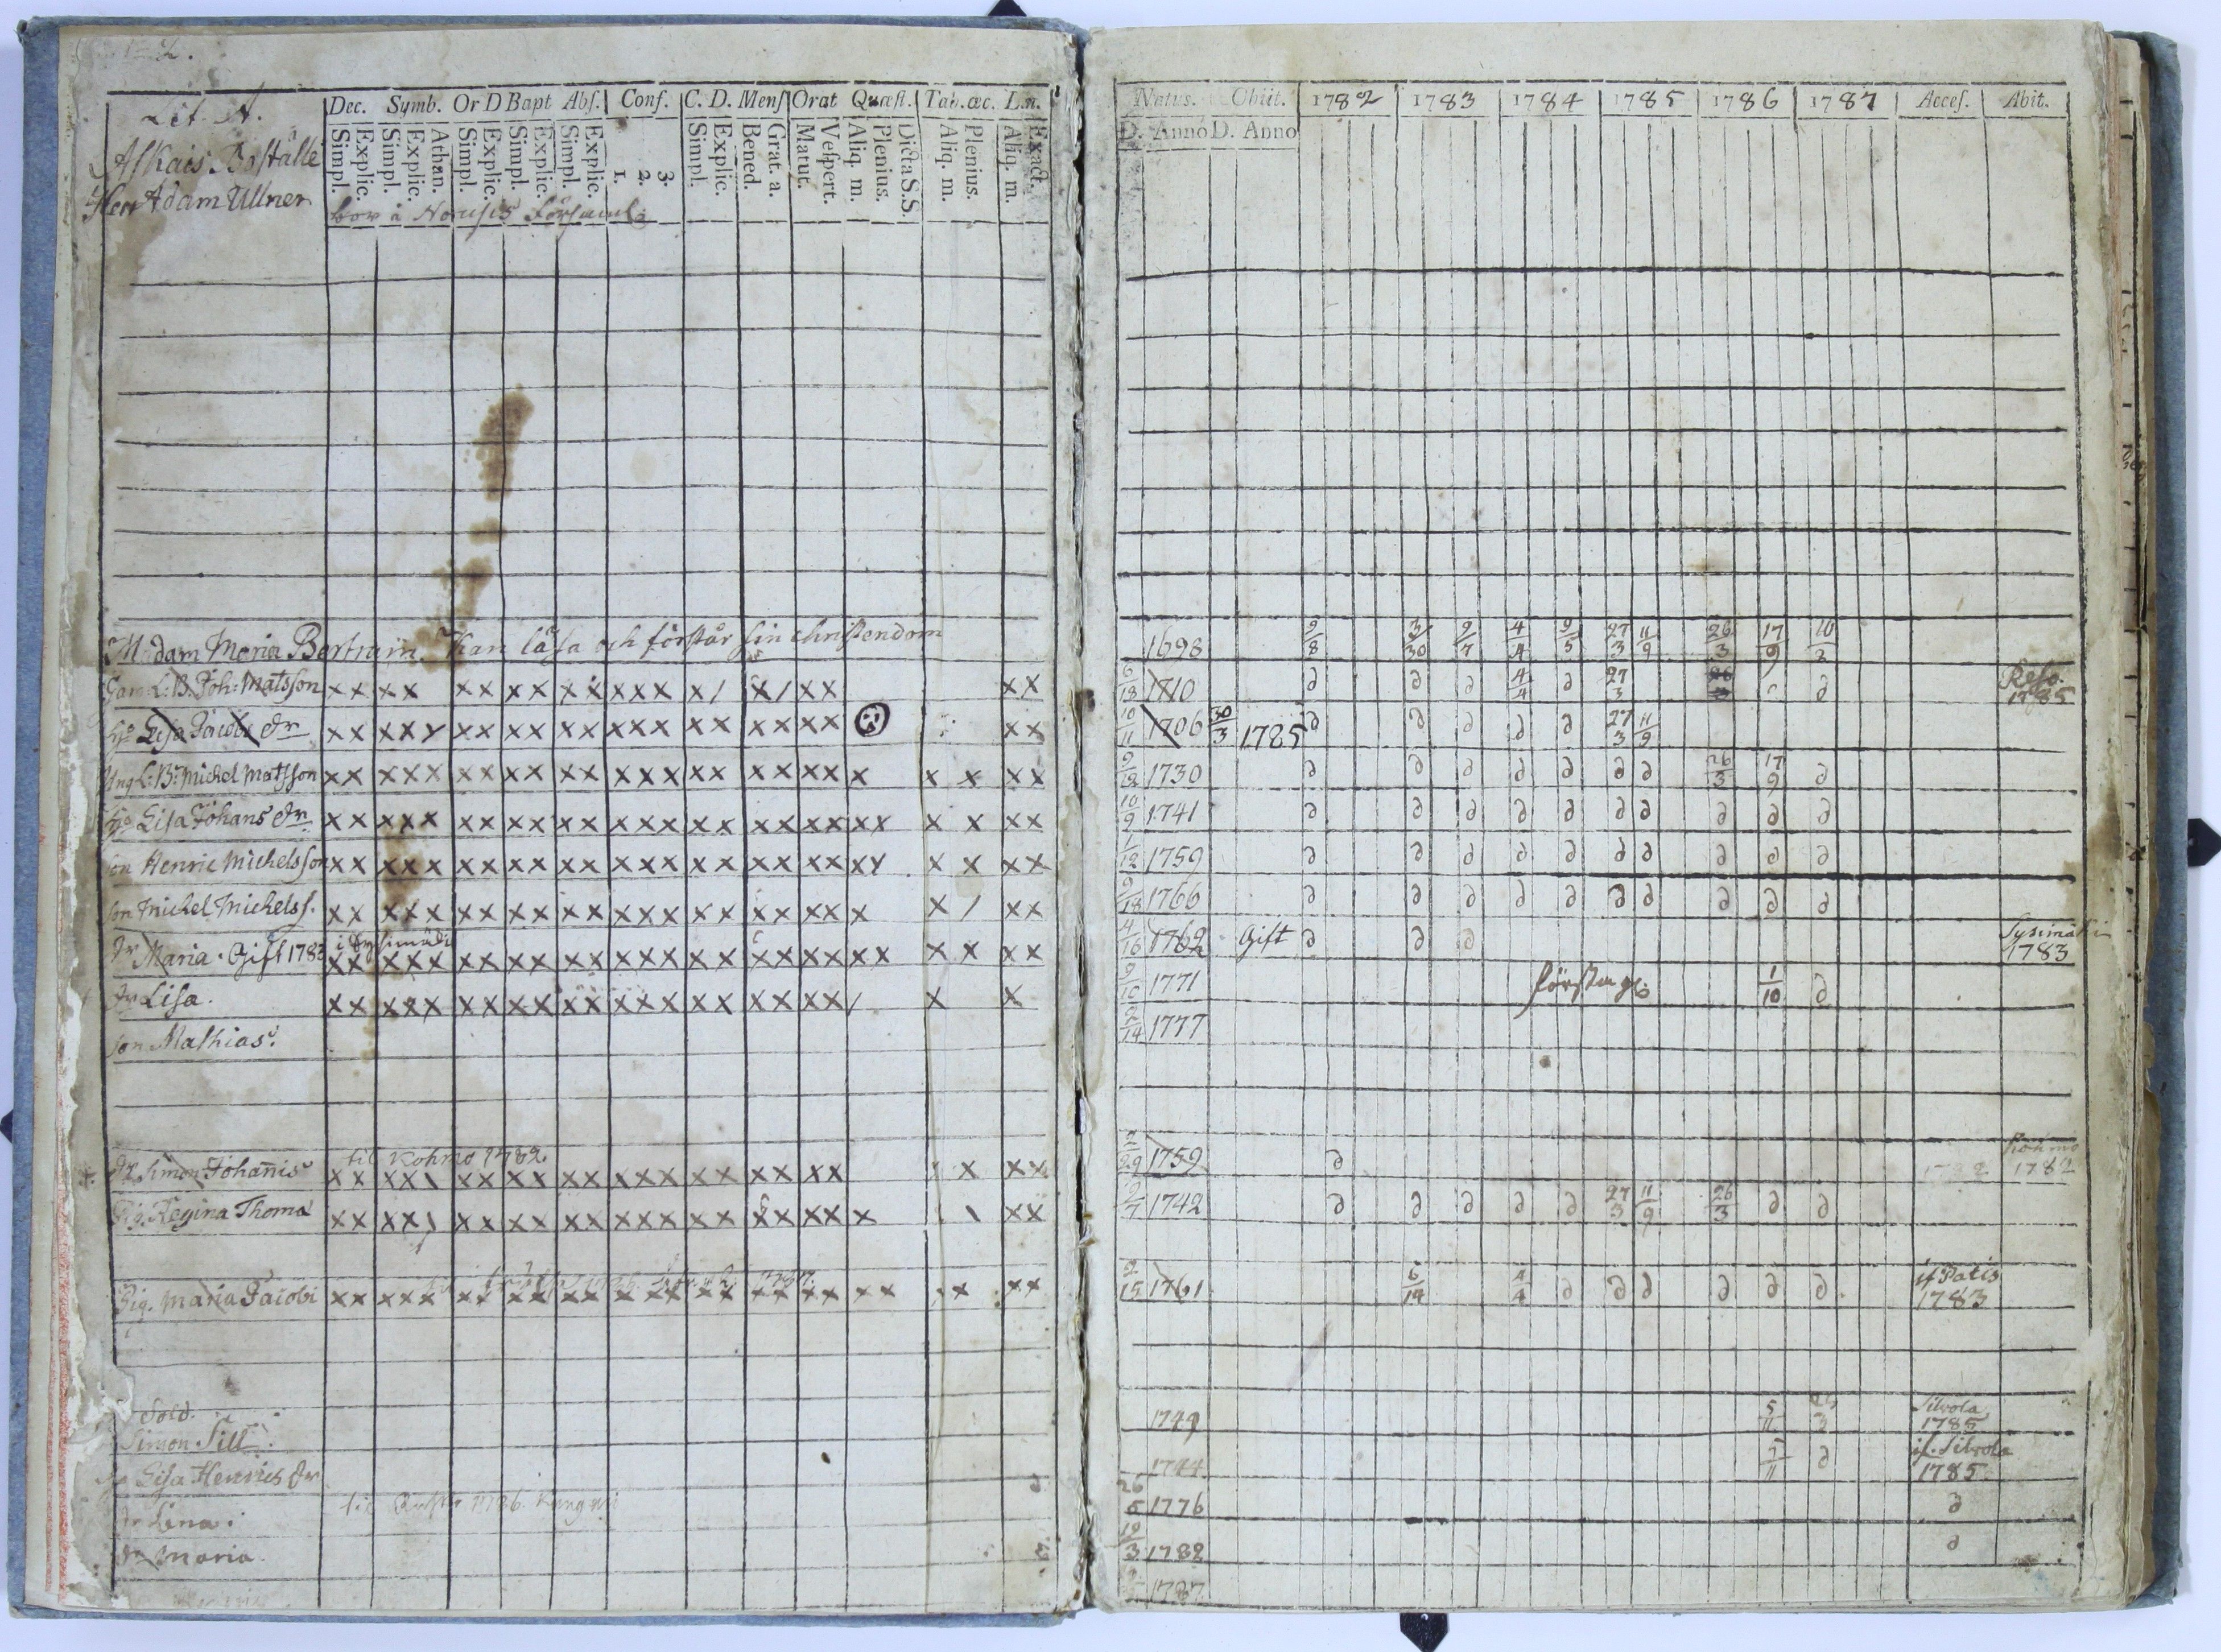 Lit. A.
Askais Boställe
Herr Adam Ullner
Dec. Symb. Or D Bapt Abs. Conf. C. D. Mens Orat Quæst. Tab. œc. L.n.
Simpl. Explic. Simpl. Explic. Athan. Simpl. Explic. Simpl. Explic. Simpl. Explic. 1. 2. 3. Simpl. Explic. Bened. Grat. a. Matut. Vespert. Aliq. m. Plenius. Dicta S.S. Aliq. m. Plenius. Aliq. m. Exact.
bor i Nousis Församl:
Natus. Obiit. 1782 1783 1784 1785 1786 1787 Acces. Abit.
D. Anno D. Anno
Madam Maria Bertram. Kan läsa och förstår sin christendom 1698 9/8 3/30 9/7 4/4 9/5 27/3 11/9 26/3 17/9 10/8
Gam: L: B. Joh: Matsson xx xx xx xx xx xxx x/ x/ xx xx 6/18 1710 ∂ ∂ ∂ 4/4 ∂ 27/3 26/3 ∂ 1785
Lisa Jacobs dr xx xxx xx xx xx xxx xx xx xx xx 10/11 1706 30/3 1785 ∂ ∂ ∂ ∂ ∂ 27/3 11/9
Ung L: B: Michel Matsson xx xxx xx xx xx xxx xx xx xx x x x xx 9/12 1730 ∂ ∂ ∂ ∂ ∂ ∂ ∂ 26/3 17/9 ∂
Lisa Johans dr xx xxx xx xx xx xxx xx xx xx xx x x xx 10/9 1741 ∂ ∂ ∂ ∂ ∂ ∂ ∂ ∂ ∂ ∂
son Henric Michelsson xx xxx xx xx xx xxx xx xx xx xx x x xx 1/12 1759 ∂ ∂ ∂ ∂ ∂ ∂ ∂ ∂ ∂ ∂
son Michel Michelss. xx xxx xx xx xx xxx xx xx xx x x / xx 9/18 1766 ∂ ∂ ∂ ∂ ∂ ∂ ∂ ∂ ∂ ∂
dr Maria. Gift 1783 xx xxx xx xx xx xxx xx xx xx xx x x xx 4/16 1762 Gift ∂ ∂ ∂ Sysimäki 1783
dr Lisa. xx xxx xx xx xx xxx xx xx xx / x x 9/10 1771 första g: 1/10 ∂
son Mathias. 2/14 1777
til Kohmo 1782.
dr Simon Johanis xx xx\ xx xx xx xxx xx xx xx x xx 1759 ∂ Kohmo 1782
Pig. Regina Thoma xx xx) xx xx xx xxx xx xx xx x \ xx 2/7 1742 ∂ ∂ ∂ ∂ ∂ 27/3 11/9 26/3 ∂ ∂
Pig. Maria Jacobi xx xxx xx xx xx xxx xx xx xx xx xx xx 2/15 1761 6/19 4/4 ∂ ∂ ∂ ∂ ∂ ∂ if Patis 1783
Sold.
Simon Sill 1749 5/11 Silvola 1785
Lisa Henrics dr 1744 5/11 ∂ if. Silvola 1785
dr Lena. 26/5 1776 ∂
dr Maria. 19/3 1782 ∂
1787